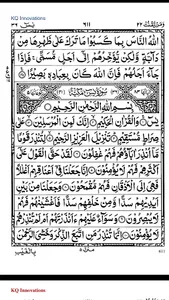 KQ Innovations
وَمَنْ يَّقْنُتْ ٢٢
٦١١
يٰسٓ ٣٦
اللّٰهُ النَّاسَ بِمَا كَسَبُوْا مَا تَرَكَ عَلٰى ظَهْرِهَا مِنْ
دَآبَّةٍ وَّلٰكِنْ يُّؤَخِّرُهُمْ اِلٰٓى اَجَلٍ مُّسَمًّى ۚ فَاِذَا
جَآءَ اَجَلُهُمْ فَاِنَّ اللّٰهَ كَانَ بِعِبَادِهٖ بَصِيْرًا
سُوْرَةُ يٰسٓ مَكِّيَّةٌ
بِسْمِ اللّٰهِ الرَّحْمٰنِ الرَّحِيْمِ
يٰسٓ وَالْقُرْاٰنِ الْحَكِيْمِ اِنَّكَ لَمِنَ الْمُرْسَلِيْنَ عَلٰى
صِرَاطٍ مُّسْتَقِيْمٍ تَنْزِيْلَ الْعَزِيْزِ الرَّحِيْمِ لِتُنْذِرَ قَوْمًا
مَّآ اُنْذِرَ اٰبَآؤُهُمْ فَهُمْ غٰفِلُوْنَ لَقَدْ حَقَّ الْقَوْلُ عَلٰٓى
اَكْثَرِهِمْ فَهُمْ لَا يُؤْمِنُوْنَ اِنَّا جَعَلْنَا فِيْٓ اَعْنَاقِهِمْ اَغْلٰلًا
فَهِيَ اِلَى الْاَذْقَانِ فَهُمْ مُّقْمَحُوْنَ وَجَعَلْنَا مِنْۢ بَيْنِ اَيْدِيْهِمْ
سَدًّا وَّمِنْ خَلْفِهِمْ سَدًّا فَاَغْشَيْنٰهُمْ فَهُمْ
لَا يُبْصِرُوْنَ وَسَوَآءٌ عَلَيْهِمْ ءَاَنْذَرْتَهُمْ اَمْ لَمْ تُنْذِرْهُمْ
لَا يُؤْمِنُوْنَ اِنَّمَا تُنْذِرُ مَنِ اتَّبَعَ الذِّكْرَ وَخَشِيَ الرَّحْمٰنَ
بِالْغَيْبِ
منزل ٥
KQ Innovations